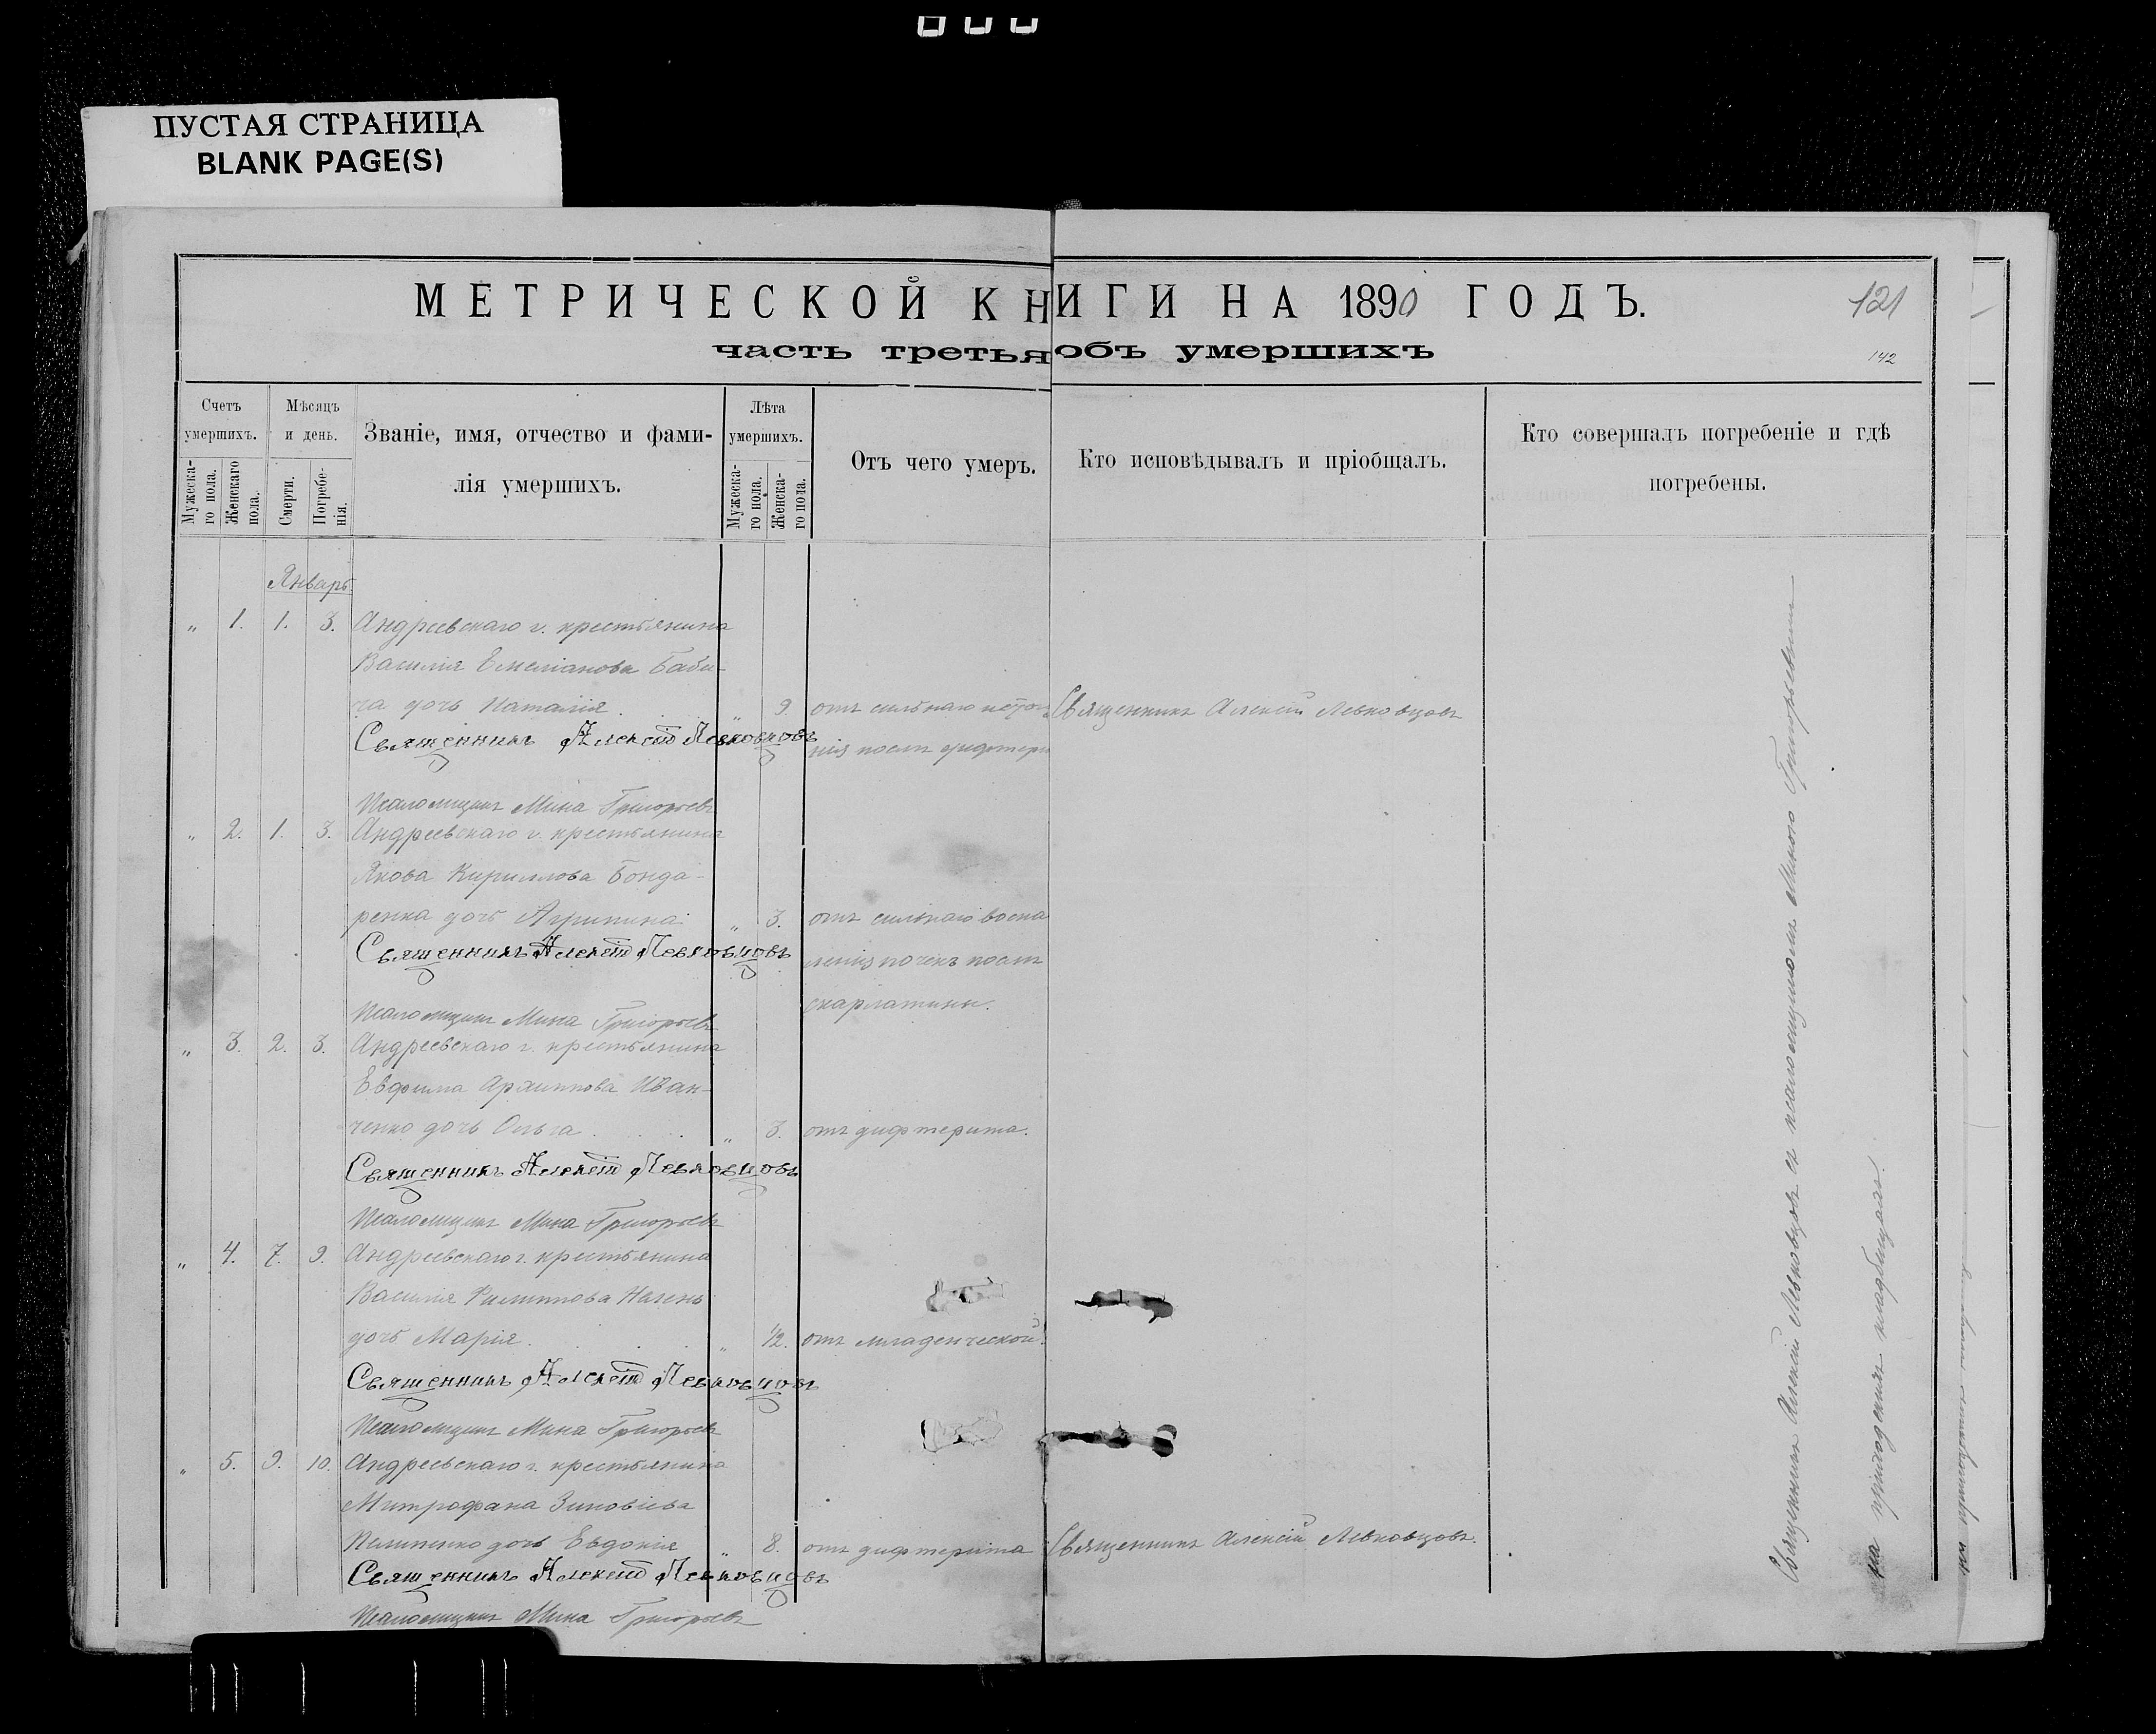 ПУСТАЯ СТРАНИЦА
BLANK PAGE(S)
МЕТРИЧЕСКОЙ КНИГИ НА 1890 ГОДЪ.
121
часть третья объ умершихъ
142
Счетъ умершихъ.
Мѣсяцъ и день.
Званіе, имя, отчество и фами-
лія умершихъ.
Лѣта умершихъ.
Отъ чего умеръ.
Кто исповѣдывалъ и пріобщалъ.
Кто совершалъ погребеніе и гдѣ
погребены.
Мужеска-
го пола.
Женскаго
пола.
Смерти.
Погребе-
нія.
Мужеска-
го пола.
Женска-
го пола.
Январь
„ 1. 1. 3. Андреевскаго г. крестьянина
Василія Емеліанова Баби-
ча дочь Наталія. „ 9. отъ сильнаго Священникъ Алексій Левковцовъ
Священникъ Алексій Левковцовъ
нія послѣ дифтери
Псаломщикъ Мина Григорьевъ
„ 2. 1. 3. Андреевскаго г. крестьянина
Якова Кириллова Бонда-
ренка дочь Агрипина. „ 3. отъ сильнаго воспа
Священникъ Алексій Левковцовъ
ленія почекъ послѣ
скарлатины.
Псаломщикъ Мина Григорьевъ
„ 3. 2. 3. Андреевскаго г. крестьянина
Евфима Архиппова Иван-
ченко дочь Ольга. „ 3. отъ дифтерита.
Священникъ Алексій Левковцовъ
Псаломщикъ Мина Григорьевъ
„ 4. 7. 9. Андреевскаго г. крестьянина
Василія Филиппова
дочь Марія. „ 1/2. отъ младенческой.
Священникъ Алексій Левковцовъ
Псаломщикъ Мина Григорьевъ
„ 5. 9. 10. Андреевскаго г. крестьянина
Митрофана Зиновіева
дочь Евдокія „ 8. отъ дифтерита Священникъ Алексій Левковцовъ.
Священникъ Алексій Левковцовъ
Псаломщикъ Мина Григорьевъ
Священникъ Алексій Левковцовъ съ псаломщикомъ Миною Григорьевымъ
на приходскомъ кладбищѣ.